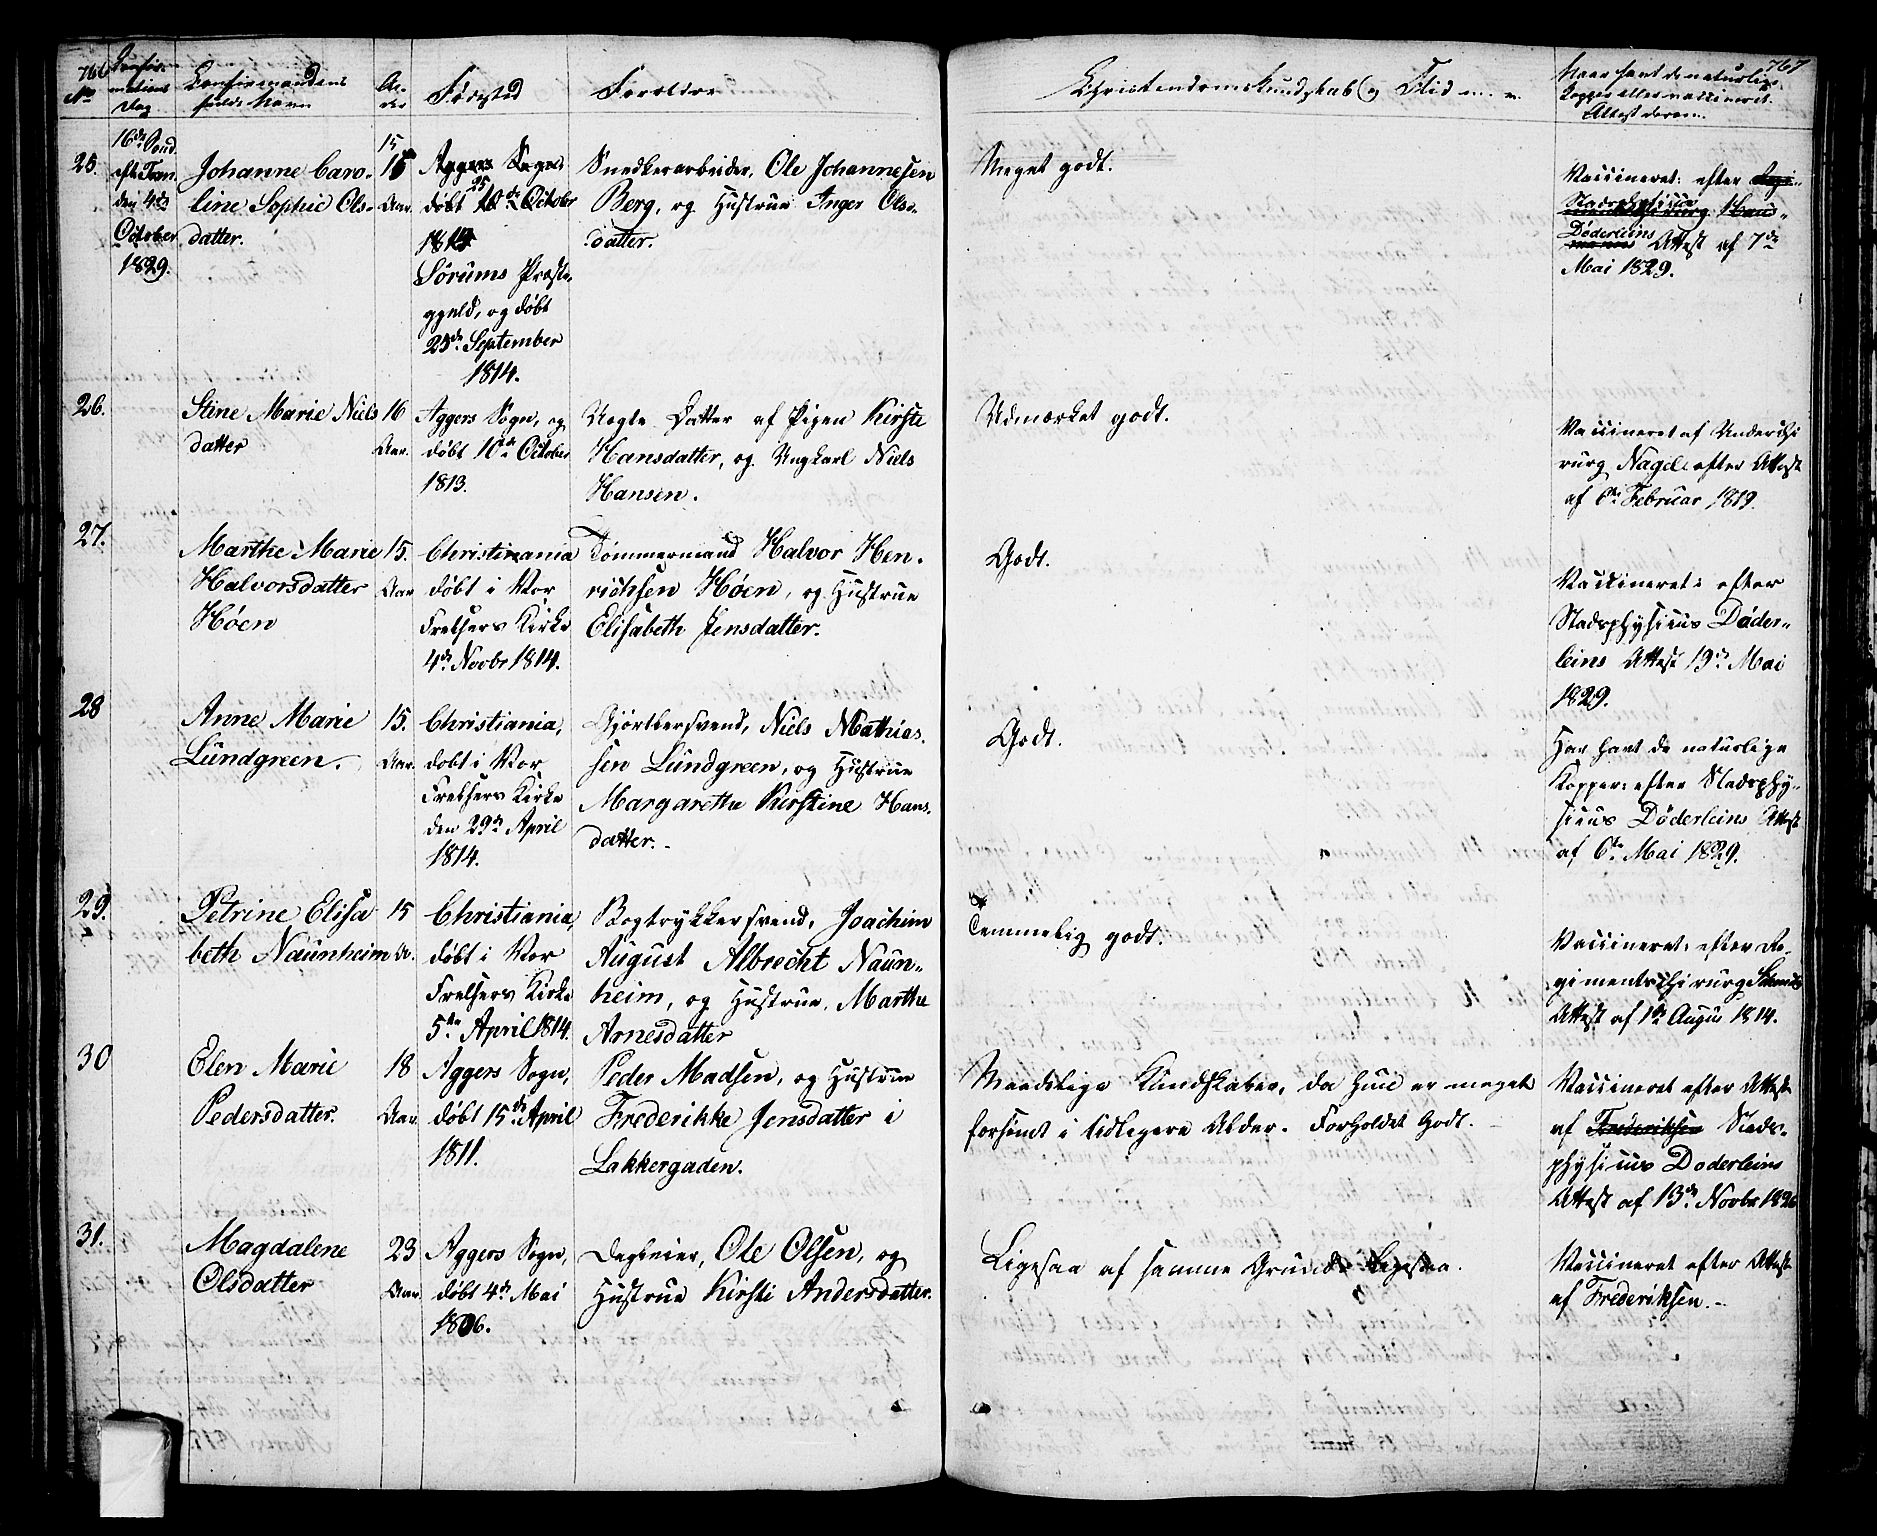 766
No
Confir-
mations
Dag.
Confirmandens
fulde Navn
Al-
der
Fødsted
Forældre
Christendomskundskab og Flid
767
Naar havt de naturlige
Kopper eller vaccineret.
Attest derom.
25.
16de Sønd.
eft. Trin.
den 4de
October
1829.
Johanne Caro-
line Sophie Ols-
datter.
15
Aar.
Aggers Sogn
døbt 25 October
1813
Sørums Præste-
gjeld, og døbt
25de September
1814.
Snedkerarbeider, Ole Johannesen
Berg, og Hustrue Inger Ols-
datter.
Meget godt.
Vaccineret: efter
Stadsphysicus
Døderleins Attest af 7de
Mai 1829.
26.
Stine Marie Niels
datter
16
Aar.
Aggers Sogn, og
døbt 10de October
1813.
Uægte Datter af Pigen Kirste
Hansdatter, og Ungkarl Niels
Hansen.
Udmærket godt.
Vaccineret af Underchi
rurg Nagel: efter Attest
af 6te Februar 1819.
27.
Marthe Marie
Halvorsdatter
Høen
15.
Aar
Christinania
døbt i Vor
Frelsers Kirke
4de Novbr 1814.
Tømmermand Halvor Hen-
richsen Høen, og Hustrue
Elisabeth Jensdatter.
Godt.
Vaccineret: efter
Stadsphysicus Døder-
leins Attest 19de Mai
1829.
28
Anne Marie
Lundgreen.
15.
Aar.
Christiania,
døbt i Vor
Frelsers Kirke
den 29de April
1814.
Gjørtlersvend, Niels Mathias
sen Lundgreen, og Hustrue
Margarethe Kirstine Hans-
datter.
Godt.
Har havt de naturlige
Kopper: efter Stadsphy-
sicus Døderleins Attest
af 6te Mai 1829.
29.
Petrine Elisa
beth Naunheim
15
Aar.
Christiania,
døbt i Vor
Frelsers Kirke
5te April 1814.
Bogtrykkersvend, Joachim
August Albrecht Naun-
heim, og Hustrue, Marthe
Arnesdatter
Temmelig godt.
Vaccineret: efter Re-
gimentschirurg
Attest af 1de Augus 1814.
30
Elen Marie
Pedersdatter.
18
Aar.
Aggers Sogn,
døbt 15de April
1811.
Peder Madsen, og Hustrue
Frederikke Jensdatter i
Lakkergaden.
Maadelige Kundskaber, da hun er meget
forsømt i tidligere Alder. Forholdet Godt.
Vaccineret efter Attest
af Frederiksen Stads-
physicus Doderleins
Attest af 13de Novbr 1826
31.
Magdalene
Olsdatter
23
Aar.
Aggers Sogn,
døbt 4de Mai
1806.
Dagleier, Ole Olsen, og
Hustrue Kirsti Andersdatter.
Ligesaa af samme Grund. Ligesaa.
Vaccineret efter Attest
af Frederiksen.